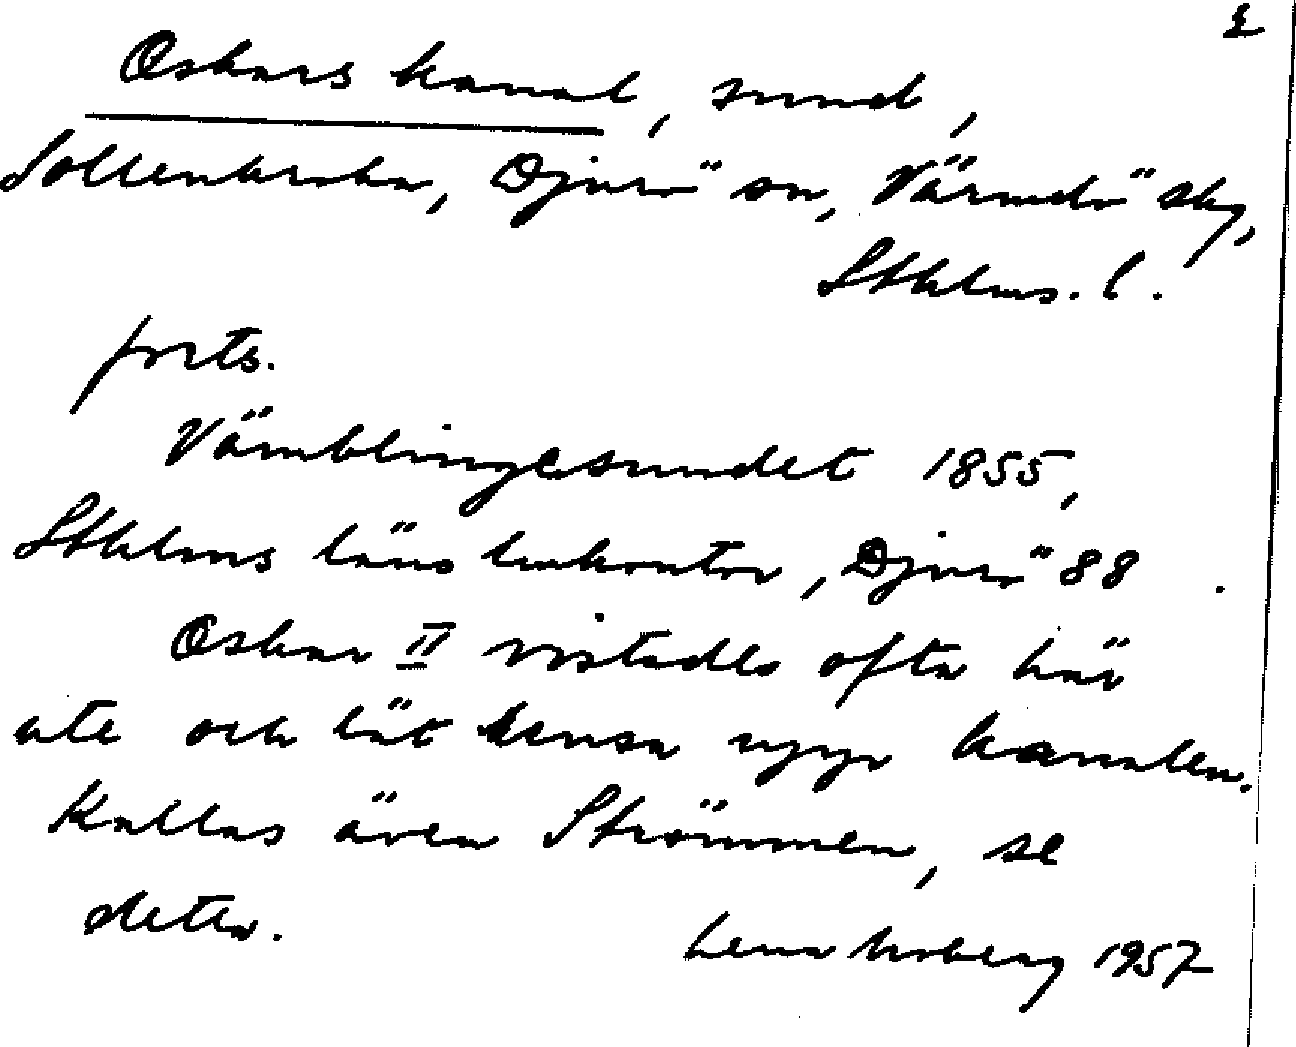 Oskars kanal, sund,
Sollenkroka, Djurö sn, Värmdö skg,
Sthlms. l.
forts.
Vämblingesundet 1855,
Sthlms läns lmkontor, Djurö 88.
Oskar II vistades ofta här
ute och lät rensa upp kanalen.
Kallas även Strömmen, se
detta.
Lena Moberg 1957